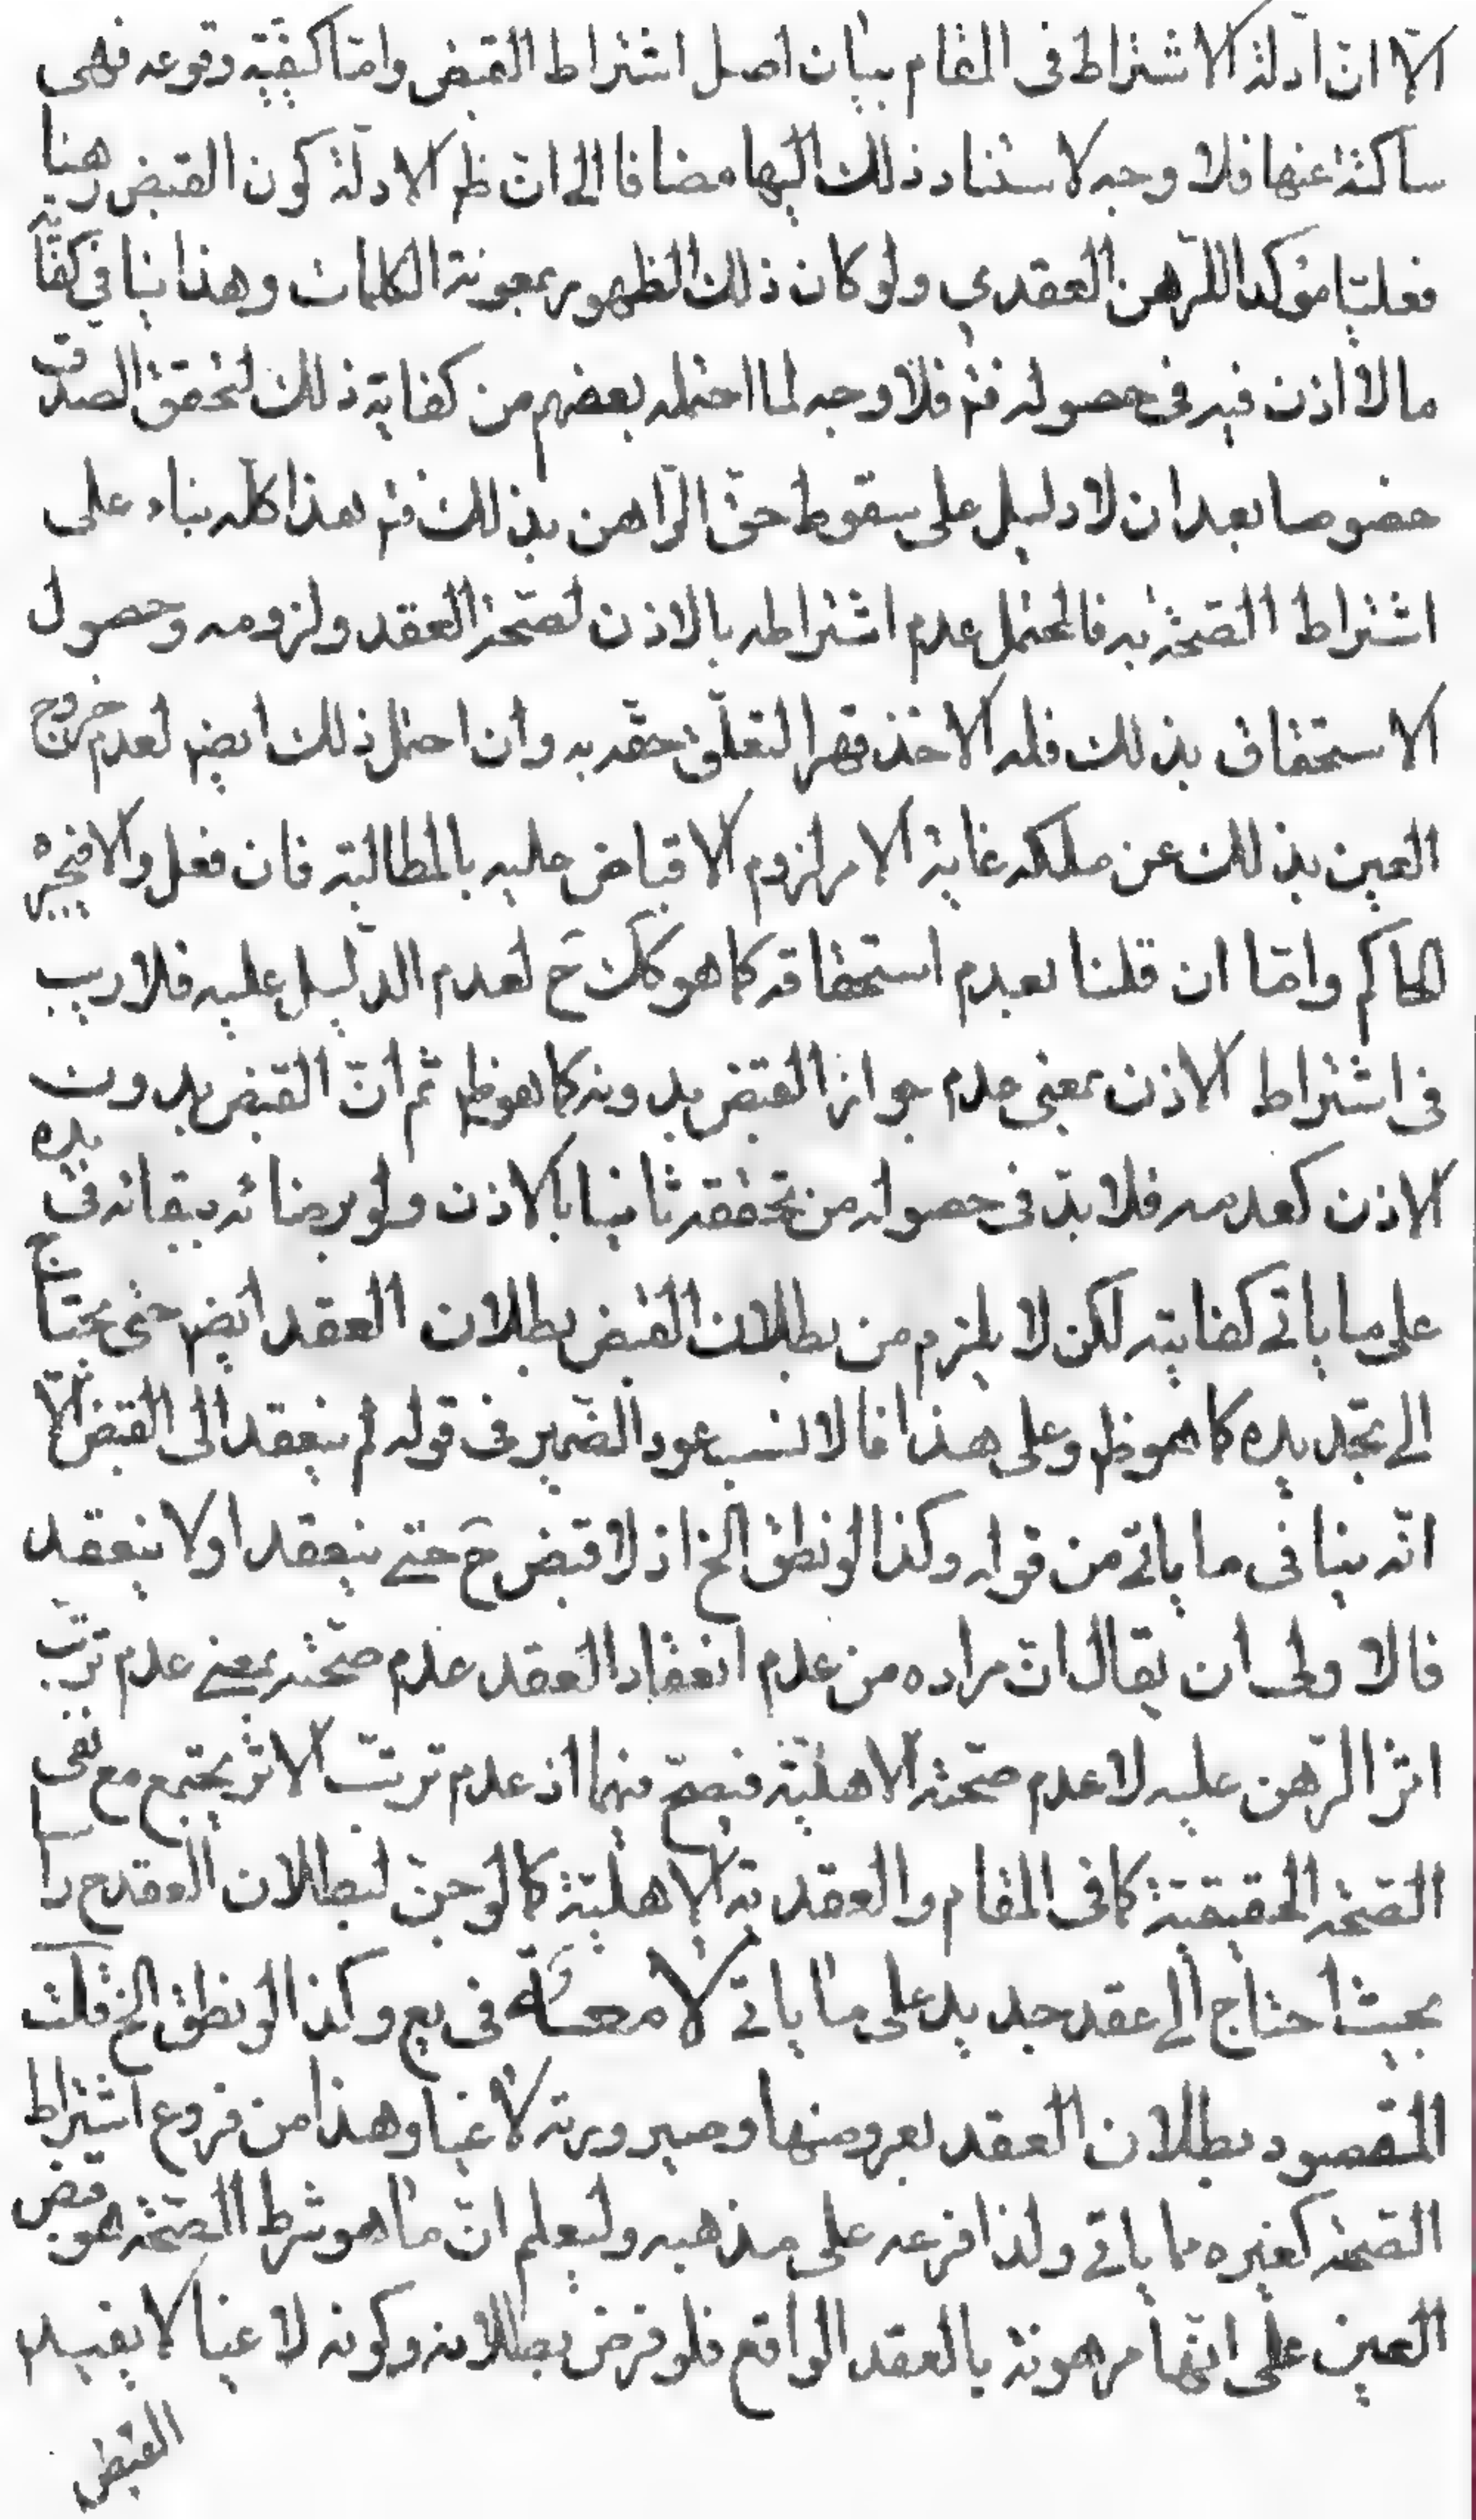 الّا انّ ادلة الاشتراط فى المقام بيان اصل اشتراط القبض وامّا كيفيّة وقوعه فهى
ساكتة عنها فلا وجه لاستناد ذلك اليها مضافا الى انّ ظ الادلّة كون القبض رهنا
فعليّا مؤكدا للرّهن العقدي ولو كان ذلك الظهور بمعونة الكلمات وهذا ينافى كفاية
مالا اذن فيه فى حصوله فت فلا وجه لما احتمله بعضهم من كفاية ذلك لتحقق الصدق
خصوصا بعد ان لا دليل على سقوط حقّ الرّاهن بذلك فت هذا كلّه بناء على
اشتراط الصّحّة به فالمحتمل عدم اشتراطه بالاذن لصّحّة العقد ولزومه وحصول
الاستحقاق بذلك فله الاخذ قهرا لتعلّق حقّه به وان احتمل ذلك ايض لعدم خروج
العين بذلك عن ملكه غاية الامر لزوم الاقباض عليه بالمطالبة فان فعل والا فيجبره
الحاكم وامّا ان قلنا بعدم استحقاقه كما هو كك ح لعدم الدّليل عليه فلا ريب
فى اشتراط الاذن بمعنى عدم جواز القبض بدونه كما هو ظ ثم انّ القبض بدون
الاذن كعدمه فلا بدّ فى حصوله من تحققه ثانيا بالاذن ولو برضائه ببقائه فى يده
على ما ياتى كفايته لكن لا يلزم من بطلان القبض بطلان العقد ايض حتى يحتاج
الى تجديده كما هو ظ وعلى هذا فالانسب عود الضّمير فى قوله لم ينعقد الى القبض الّا
انّه ينافى ما ياتى من قوله وكذا لو نطق الخ اذ لا قبض ح حتى ينعقد او لا ينعقد
فالاولى ان يقال انّ مراده من عدم انعقاد العقد عدم صحّته بمعنى عدم ترتّب
اثر الرّهن عليه لا عدم صحّته الاهليّة فيصحّ فيهما اذ عدم ترتّب الاثر يجتمع مع نفى
الصّحّة الحقيقيّة كما فى المقام والعقديّة الاهليّة كما لو جنّ لبطلان العقد ح راسا
بحيث احتاج الى عقد جديد على ما ياتى لا معه فى يع وكذا لو نطق الخ قلت
المقصود بطلان العقد بعروضها وصيرورته لاغيا وهذا من فروع اشتراط
الصّحّة كغيره مما ياتى ولذا فرعه على مذهبه وليعلم انّ ما هو شرط الصّحّة هو قبض
العين على انّها مرهونة بالعقد الواقع فلو فرض بطلانه وكونه لاغيا لا يفيده
القبض